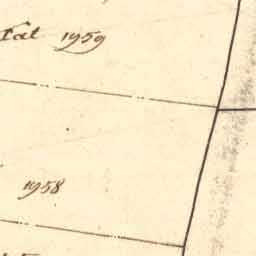 Tat 1959
1958